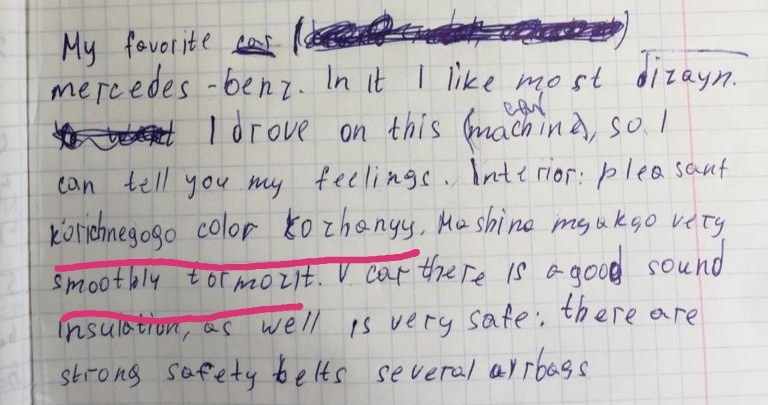 My favorite car (
mercedes-benz. In it I like most dizayn.
car
I drove on this (machine), so I
can tell you my feelings. Interior: pleasant
korichnegogo color kozhanyy. Mashina myakgo very
smoothly tormozit. V car there is a good sound
insulation, as well is very safe: there are
strong safety belts several ayrbags